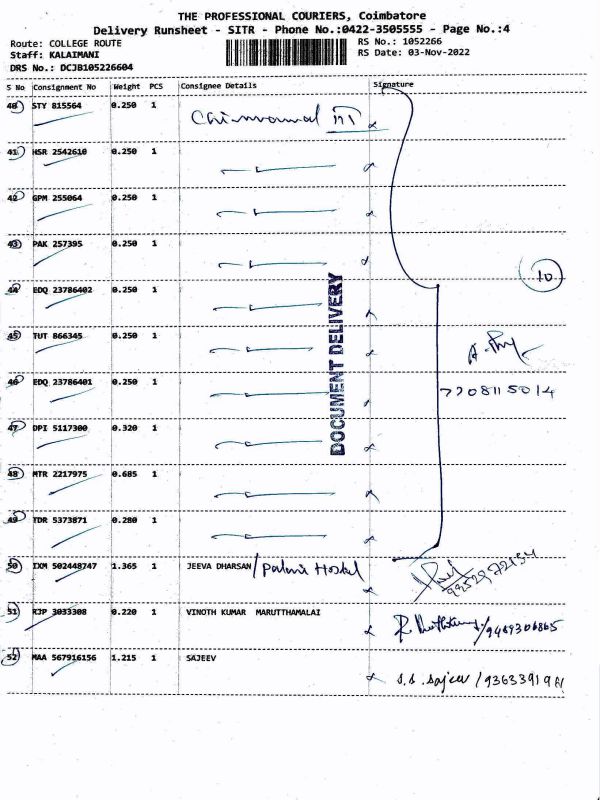 THE PROFESSIONAL COURIERS, Coimbatore
Delivery Runsheet - SITR - Phone No.:0422-3505555 - Page No.:4
Route: COLLEGE ROUTE RS No.: 1052266
Staff: KALAIMANI RS Date: 03-Nov-2022
DRS No.: DCJB105226604
S No Consignment No Weight PCS Consignee Details Signature
40 STY 815564 0.250 1
41 HSR 2542610 0.250 1
42 GPM 255064 0.250 1
43 PAK 257395 0.250 1
10
44 EDQ 23786402 0.250 1
45 TUT 866345 0.250 1
46 EDQ 23786401 0.250 1
7708115014
47 DPI 5117300 0.320 1
48 MTR 2217975 0.685 1
49 TDR 5373871 0.280 1
DOCUMENT DELIVERY
50 IXM 502448747 1.365 1 JEEVA DHARSAN / Hostel
51 KJP 3033308 0.220 1 VINOTH KUMAR MARUTTHAMALAI /9489306865
52 MAA 567916156 1.215 1 SAJEEV
S.S. Sajeev /